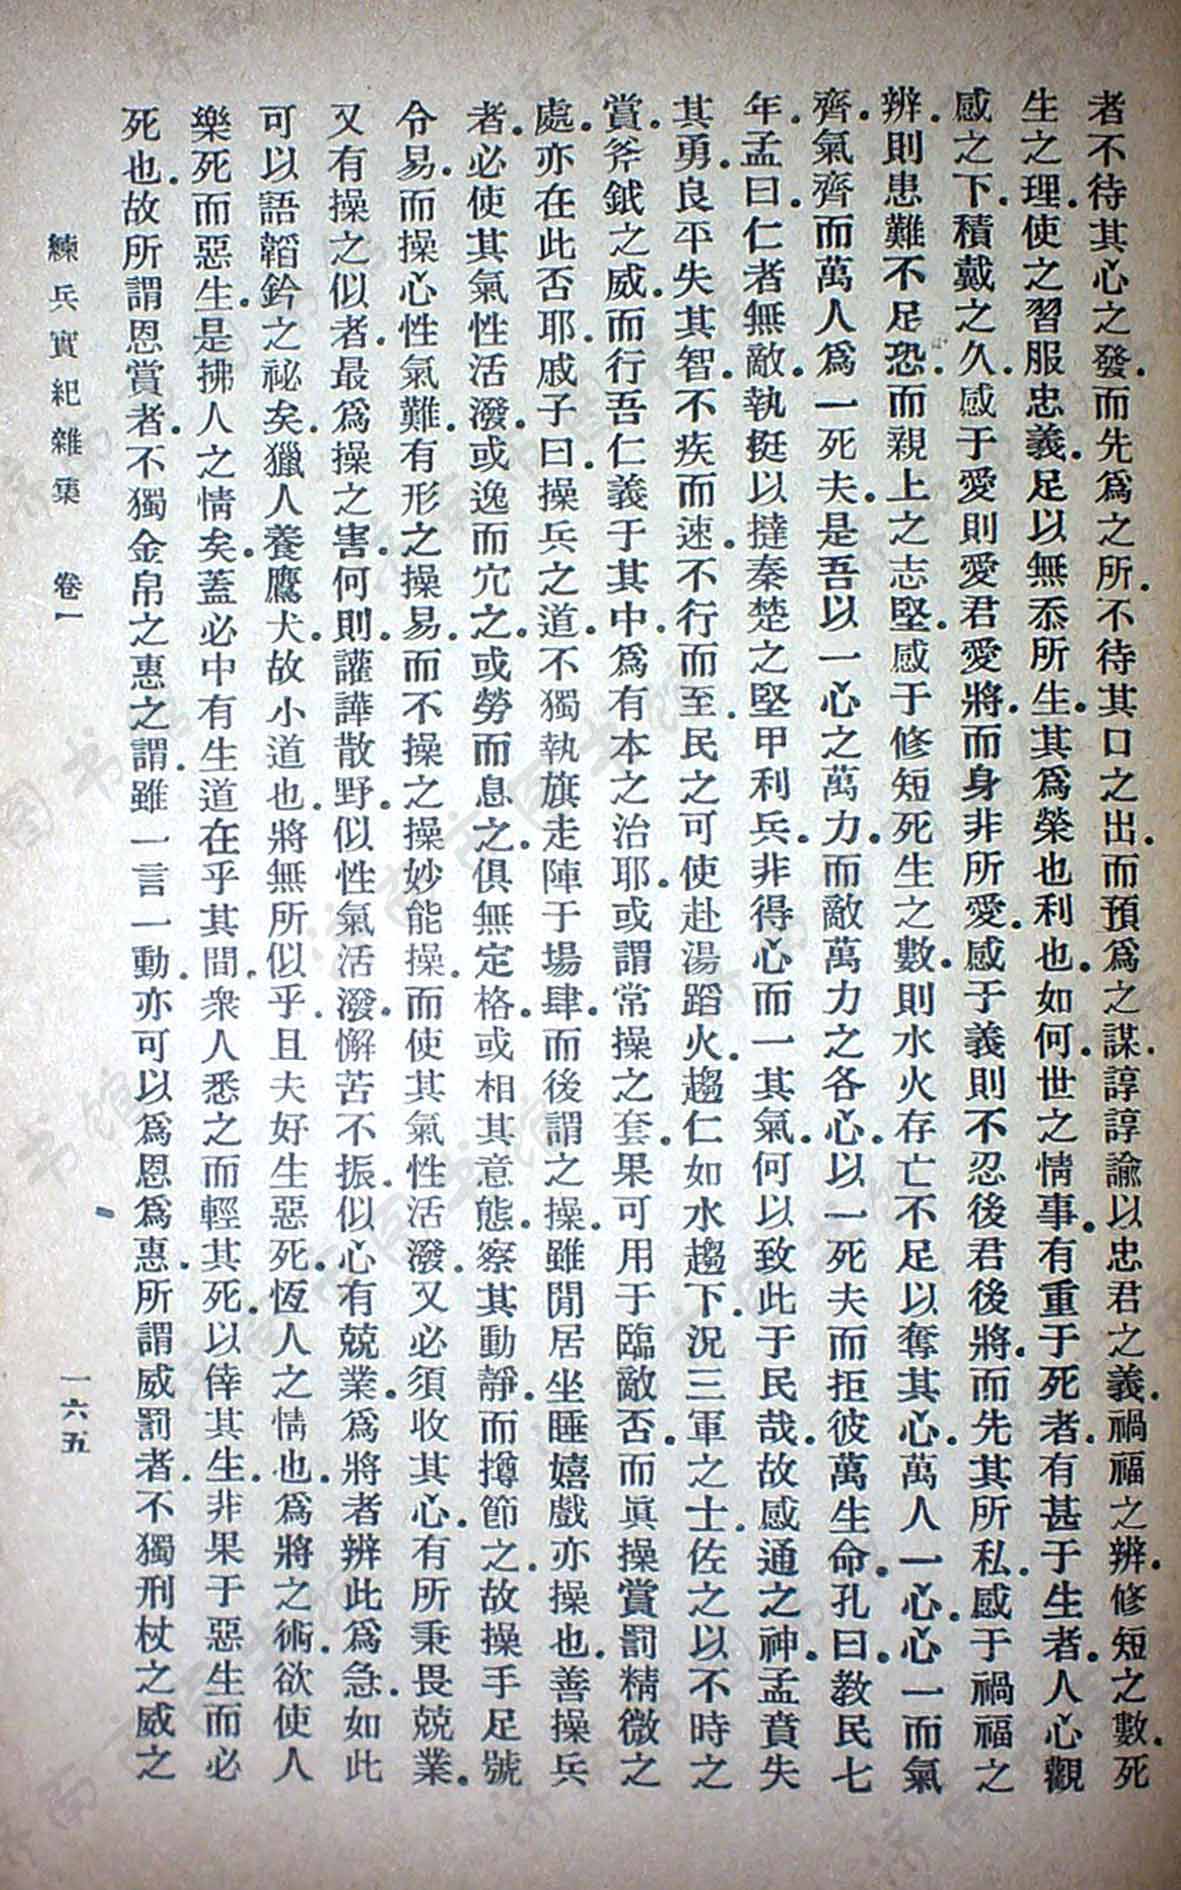 者不待其心之發．而先爲之所．不待其口之出．而預爲之謀．諄諄諭以忠君之義．禍福之辨．修短之數．死
生之理．使之習服忠義．足以無忝所生．其爲榮也利也．如何．世之情事．有重于死者．有甚于生者．人心觀
感之下．積戴之久．感于愛則愛君愛將．而身非所愛．感于義則不忍後君後將．而先其所私．感于禍福之
辨．則患難不足恐．而親上之志堅．感于修短死生之數．則水火存亡不足以奪其心．萬人一心．心一而氣
齊．氣齊而萬人爲一死夫．是吾以一心之萬力．而敵萬力之各心．以一死夫而拒彼萬生命．孔曰．教民七
年．孟曰．仁者無敵．執挺以撻秦楚之堅甲利兵．非得心而一其氣．何以致此于民哉．故感通之神．孟賁失
其勇．良平失其智．不疾而速．不行而至．民之可使赴湯蹈火．趨仁如水趨下．況三軍之士．佐之以不時之
賞．斧鉞之威．而行吾仁義于其中．爲有本之治耶．或謂常操之套．果可用于臨敵否．而眞操賞罰精微之
處．亦在此否耶．戚子曰．操兵之道．不獨執旗走陣于場肆．而後謂之操．雖閒居坐睡嬉戲亦操也．善操兵
者．必使其氣性活潑．或逸而冗之．或勞而息之．俱無定格．或相其意態．察其動靜．而撙節之．故操手足號
令易．而操心性氣難．有形之操易．而不操之操妙．能操．而使其氣性活潑．又必須收其心．有所秉畏兢業．
又有操之似者．最爲操之害．何則．讙譁散野．似性氣活潑．懈苦不振．似心有兢業．爲將者辨此爲急．如此
可以語韜鈐之祕矣．獵人養鷹犬．故小道也．將無所似乎．且夫好生惡死．恆人之情也．爲將之術．欲使人
樂死而惡生．是拂人之情矣．蓋必中有生道在乎其間．衆人悉之．而輕其死．以倖其生．非果于惡生而必
死也．故所謂恩賞者．不獨金帛之惠之謂．雖一言一動．亦可以爲恩爲惠．所謂威罰者．不獨刑杖之威之
練兵實紀雜集　卷一　一六五